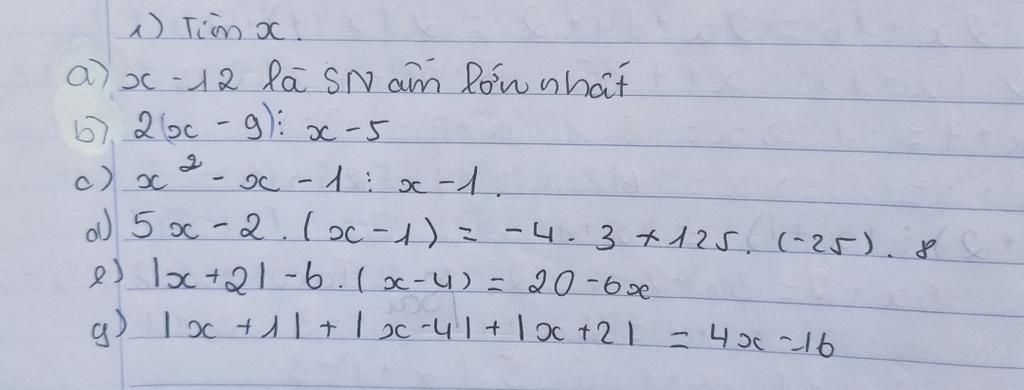 1) Tìm x.
a) x - 12 là SN âm lớn nhất
b) 2(x - 9) ⋮ x - 5
c) x² - x - 1 ⋮ x - 1.
d) 5x - 2 . (x - 1) = -4 . 3 + 125 . (-25) . 8
e) |x + 2| - 6 . (x - 4) = 20 - 6x
g) |x + 1| + |x - 4| + |x + 2| = 4x - 16